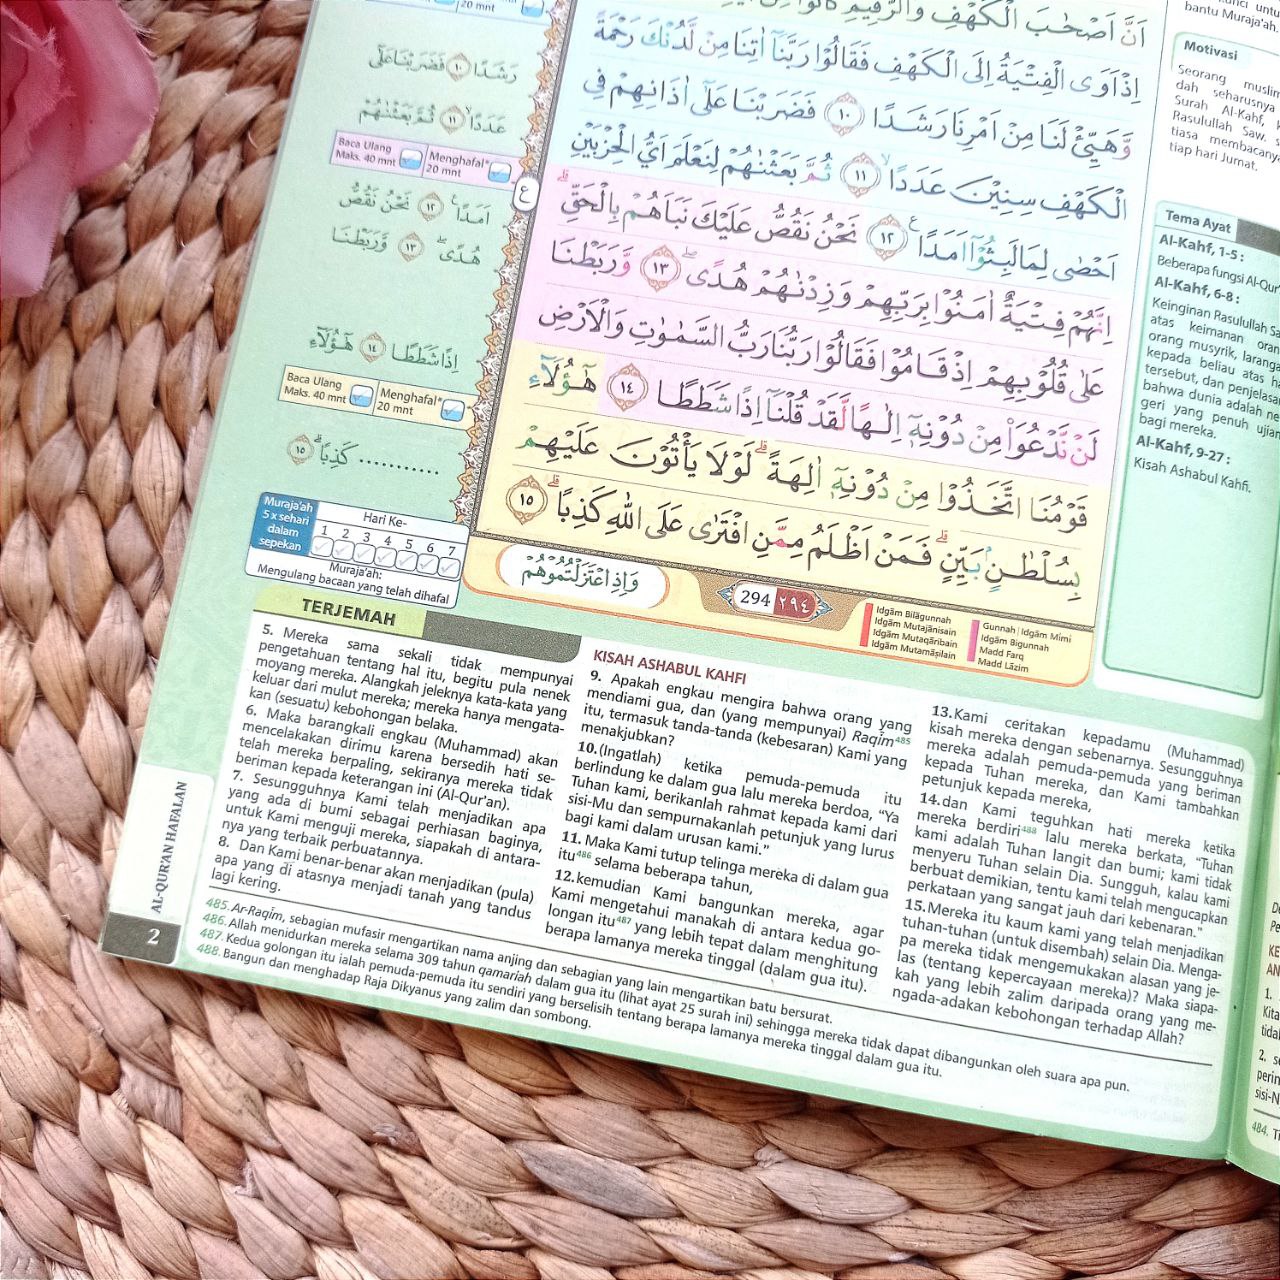 20 mnt
رَشَدًا ١٠ فَضَرَبْنَا عَلٰٓى
عَدَدًا ١١ ثُمَّ بَعَثْنٰهُمْ
Baca Ulang
Maks. 40 mnt
Menghafal*
20 mnt
اَمَدًا ١٢ نَحْنُ نَقُصُّ
هُدًى ١٣ وَّرَبَطْنَا
اِذًا شَطَطًا ١٤ هٰٓؤُلَاۤءِ
Baca Ulang
Maks. 40 mnt
Menghafal*
20 mnt
........... كَذِبًا ١٥
Muraja'ah
5 x sehari
dalam
sepekan
Hari Ke-
1 2 3 4 5 6 7
Muraja'ah:
Mengulang bacaan yang telah dihafal
اَنَّ اَصْحٰبَ الْكَهْفِ وَالرَّقِيْمِ كَانُوْا مِنْ
اِذْ اَوَى الْفِتْيَةُ اِلَى الْكَهْفِ فَقَالُوْا رَبَّنَآ اٰتِنَا مِنْ لَّدُنْكَ رَحْمَةً
وَّهَيِّئْ لَنَا مِنْ اَمْرِنَا رَشَدًا ١٠ فَضَرَبْنَا عَلٰٓى اٰذَانِهِمْ فِى
الْكَهْفِ سِنِيْنَ عَدَدًا ١١ ثُمَّ بَعَثْنٰهُمْ لِنَعْلَمَ اَيُّ الْحِزْبَيْنِ
اَحْصٰى لِمَا لَبِثُوْٓا اَمَدًا ١٢ نَحْنُ نَقُصُّ عَلَيْكَ نَبَاَهُمْ بِالْحَقِّۗ
اِنَّهُمْ فِتْيَةٌ اٰمَنُوْا بِرَبِّهِمْ وَزِدْنٰهُمْ هُدًىۖ ١٣ وَّرَبَطْنَا
عَلٰى قُلُوْبِهِمْ اِذْ قَامُوْا فَقَالُوْا رَبُّنَا رَبُّ السَّمٰوٰتِ وَالْاَرْضِ
لَنْ نَّدْعُوَا۟ مِنْ دُوْنِهٖٓ اِلٰهًا لَّقَدْ قُلْنَآ اِذًا شَطَطًا ١٤ هٰٓؤُلَاۤءِ
قَوْمُنَا اتَّخَذُوْا مِنْ دُوْنِهٖٓ اٰلِهَةًۗ لَوْلَا يَأْتُوْنَ عَلَيْهِمْ
بِسُلْطٰنٍ بَيِّنٍۗ فَمَنْ اَظْلَمُ مِمَّنِ افْتَرٰى عَلَى اللّٰهِ كَذِبًاۗ ١٥
ع
وَاِذِ اعْتَزَلْتُمُوْهُمْ
294 ٢٩٤
Idgām Bilāgunnah
Idgām Mutajānisain
Idgām Mutaqāribain
Idgām Mutamāṡilain
Gunnah | Idgām Mimi
Idgām Bigunnah
Madd Farq
Madd Lāzim
bantu Muraja'ah.
Motivasi
Seorang muslim
dah seharusnya
Surah Al-Kahf,
Rasulullah Saw. s
tiasa membacany
tiap hari Jumat.
Tema Ayat
Al-Kahf, 1-5 :
Beberapa fungsi Al-Qur'
Al-Kahf, 6-8 :
Keinginan Rasulullah Sa
atas keimanan oran
orang musyrik, larang
kepada beliau atas h
tersebut, dan penjelasa
bahwa dunia adalah ne
geri yang penuh ujian
bagi mereka.
Al-Kahf, 9-27 :
Kisah Ashabul Kahfi.
TERJEMAH
5. Mereka sama sekali tidak mempunyai
pengetahuan tentang hal itu, begitu pula nenek
moyang mereka. Alangkah jeleknya kata-kata yang
keluar dari mulut mereka; mereka hanya mengata-
kan (sesuatu) kebohongan belaka.
6. Maka barangkali engkau (Muhammad) akan
mencelakakan dirimu karena bersedih hati se-
telah mereka berpaling, sekiranya mereka tidak
beriman kepada keterangan ini (Al-Qur'an).
7. Sesungguhnya Kami telah menjadikan apa
yang ada di bumi sebagai perhiasan baginya,
untuk Kami menguji mereka, siapakah di antara-
nya yang terbaik perbuatannya.
8. Dan Kami benar-benar akan menjadikan (pula)
apa yang di atasnya menjadi tanah yang tandus
lagi kering.
KISAH ASHABUL KAHFI
9. Apakah engkau mengira bahwa orang yang
mendiami gua, dan (yang mempunyai) Raqīm⁴⁸⁵
itu, termasuk tanda-tanda (kebesaran) Kami yang
menakjubkan?
10.(Ingatlah) ketika pemuda-pemuda itu
berlindung ke dalam gua lalu mereka berdoa, "Ya
Tuhan kami, berikanlah rahmat kepada kami dari
sisi-Mu dan sempurnakanlah petunjuk yang lurus
bagi kami dalam urusan kami."
11. Maka Kami tutup telinga mereka di dalam gua
itu⁴⁸⁶ selama beberapa tahun,
12.kemudian Kami bangunkan mereka, agar
Kami mengetahui manakah di antara kedua go-
longan itu⁴⁸⁷ yang lebih tepat dalam menghitung
berapa lamanya mereka tinggal (dalam gua itu).
13.Kami ceritakan kepadamu (Muhammad)
kisah mereka dengan sebenarnya. Sesungguhnya
mereka adalah pemuda-pemuda yang beriman
kepada Tuhan mereka, dan Kami tambahkan
petunjuk kepada mereka,
14.dan Kami teguhkan hati mereka ketika
mereka berdiri⁴⁸⁸ lalu mereka berkata, "Tuhan
kami adalah Tuhan langit dan bumi; kami tidak
menyeru Tuhan selain Dia. Sungguh, kalau kami
berbuat demikian, tentu kami telah mengucapkan
perkataan yang sangat jauh dari kebenaran."
15.Mereka itu kaum kami yang telah menjadikan
tuhan-tuhan (untuk disembah) selain Dia. Menga-
pa mereka tidak mengemukakan alasan yang je-
las (tentang kepercayaan mereka)? Maka siapa-
kah yang lebih zalim daripada orang yang me-
ngada-adakan kebohongan terhadap Allah?
485. Ar-Raqīm, sebagian mufasir mengartikan nama anjing dan sebagian yang lain mengartikan batu bersurat.
486. Allah menidurkan mereka selama 309 tahun qamariah dalam gua itu (lihat ayat 25 surah ini) sehingga mereka tidak dapat dibangunkan oleh suara apa pun.
487. Kedua golongan itu ialah pemuda-pemuda itu sendiri yang berselisih tentang berapa lamanya mereka tinggal dalam gua itu.
488. Bangun dan menghadap Raja Dikyanus yang zalim dan sombong.
AL-QUR'AN HAFALAN
2
1.
Kita
tidak
2. se
perin
sisi-N
484. Ti